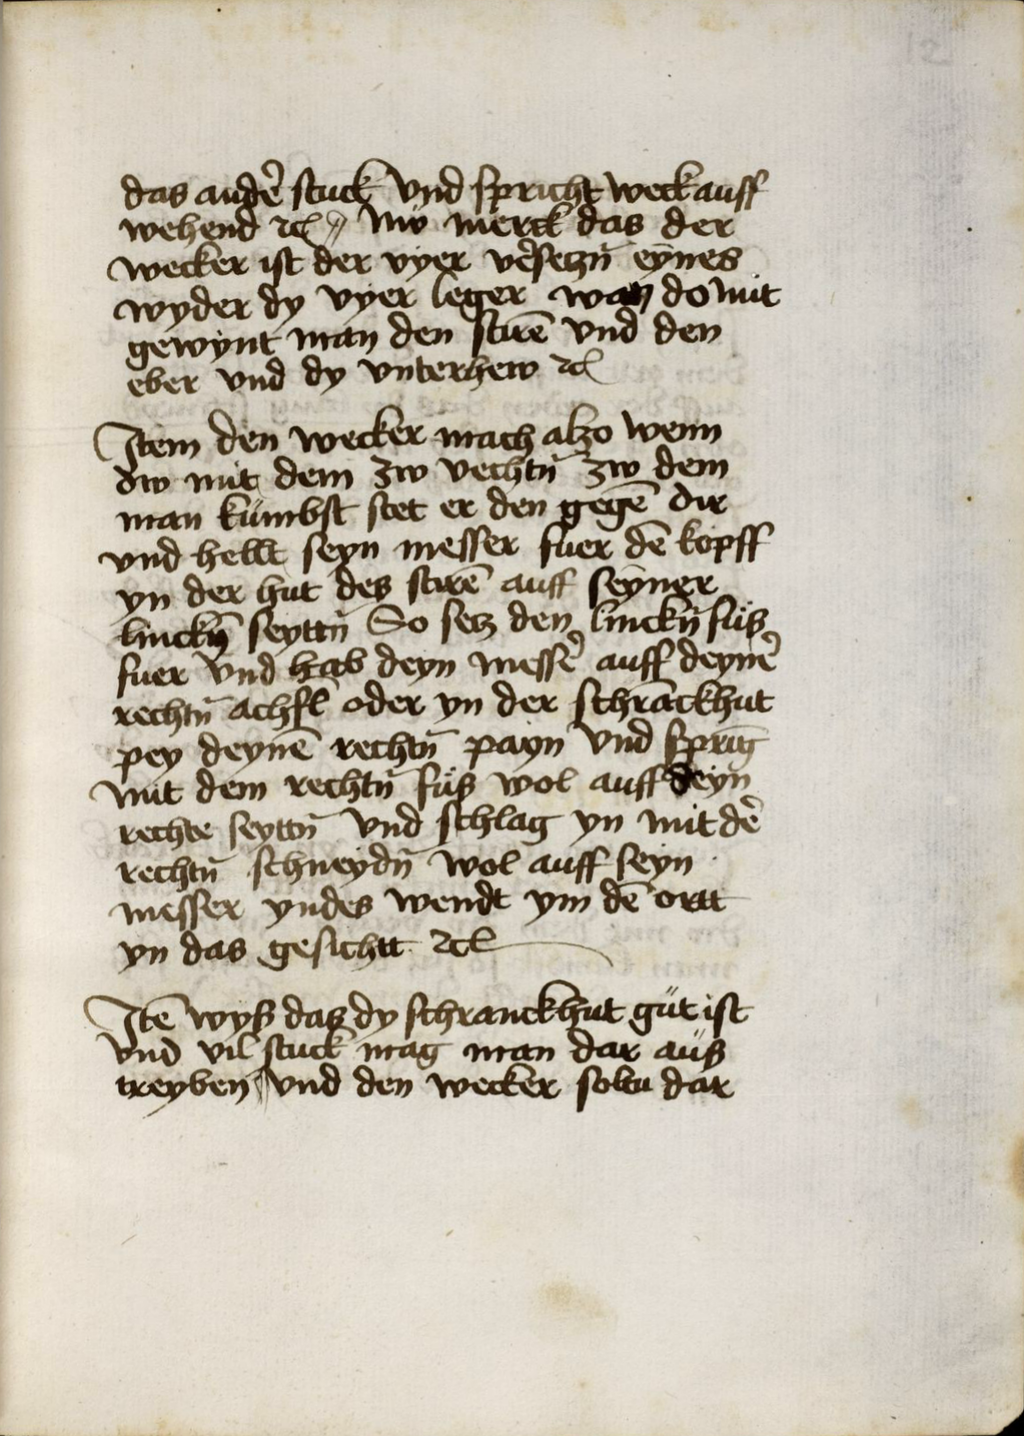 das andẻ stuck vnd spricht weckauff
wehend ⁊c̃ // Nw merck das der
wecker ist der vyer vẻsetzñ eynes
wyder dy vyer leger wan do mit
gewynt man den stirē vnd den
eber vnd dy vnterhew ⁊c̃
Item den wecker mach alzo wenn
dw mit dem zw vechtñ zw dem
man kümbst stet er den gegē dir
vnd hellt seyn messer fuer dē kopff
yn der hut des stirē auff seyner
linckñ seyttñ So setz den linckñ füß
fuer vnd hab deyn messẻ auff deynẻ
rechtñ achsl̃ oder yn der schrāckhut
pey deynē rechtñ payn vnd sprīg
mit dem rechtñ füß wol auff deyn
rechte seyttñ vnd schlag yn mit dẻ
rechtñ schneydñ wol auff seyn
messer yndes wendt ym dē ortt
yn das gesichtt ⁊c̃
Itē wyß das dy schranckhut güt ist
vnd vil stuck mag man dar auß
treyben // vnd den wecker soltu dar